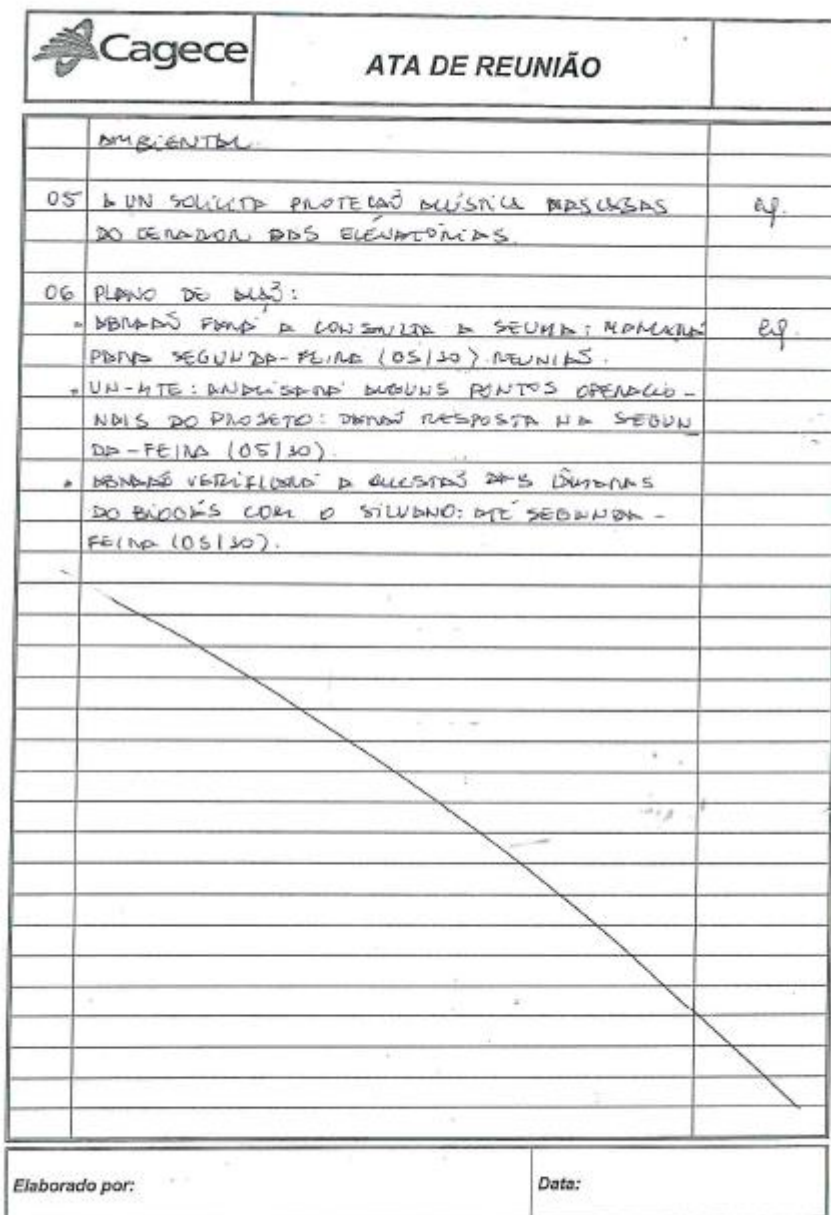 Cagece
ATA DE REUNIÃO
AMBIENTAL.
05 A UN SOLICITA PROTEÇÃO ACÚSTICA NAS CASAS
DO GERADOR DAS ELEVATÓRIAS.
06 PLANO DE AÇÃO:
FARÁ A CONSULTA A SEUMA: MARCARÁ
PARA SEGUNDA-FEIRA (05/10) REUNIÃO.
UN-MTE: ANALISARÁ ALGUNS PONTOS OPERACIO-
NAIS DO PROJETO: DARÁ RESPOSTA NA SEGUN
DA-FEIRA (05/10).
VERIFICARÁ A QUESTÃO DAS CÂMARAS
DO BIOGÁS COM O SILVANO: ATÉ SEGUNDA-
FEIRA (05/10).
Elaborado por:
Data: